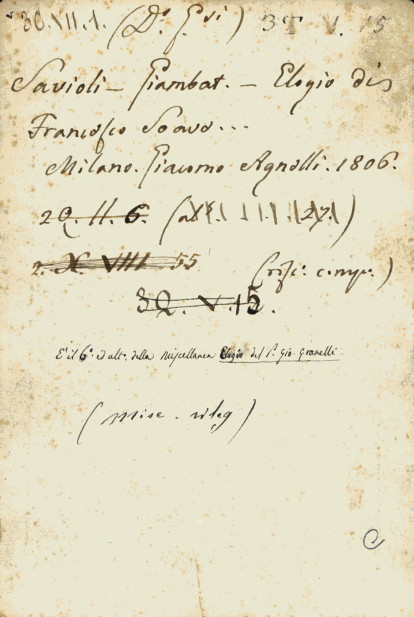 30.VII.1. 3T V. 15
Savioli - Giambat. - Elogio di
Francesco Soave...
Milano. Giacomo Agnelli. 1806.
2Q. II. 6.
2. X. VIII 55
3Q. V. 15.
E' il 6° ed ult. della Miscellanea Elogio del P. Gio. Granelli.
(Misc. rileg)
C